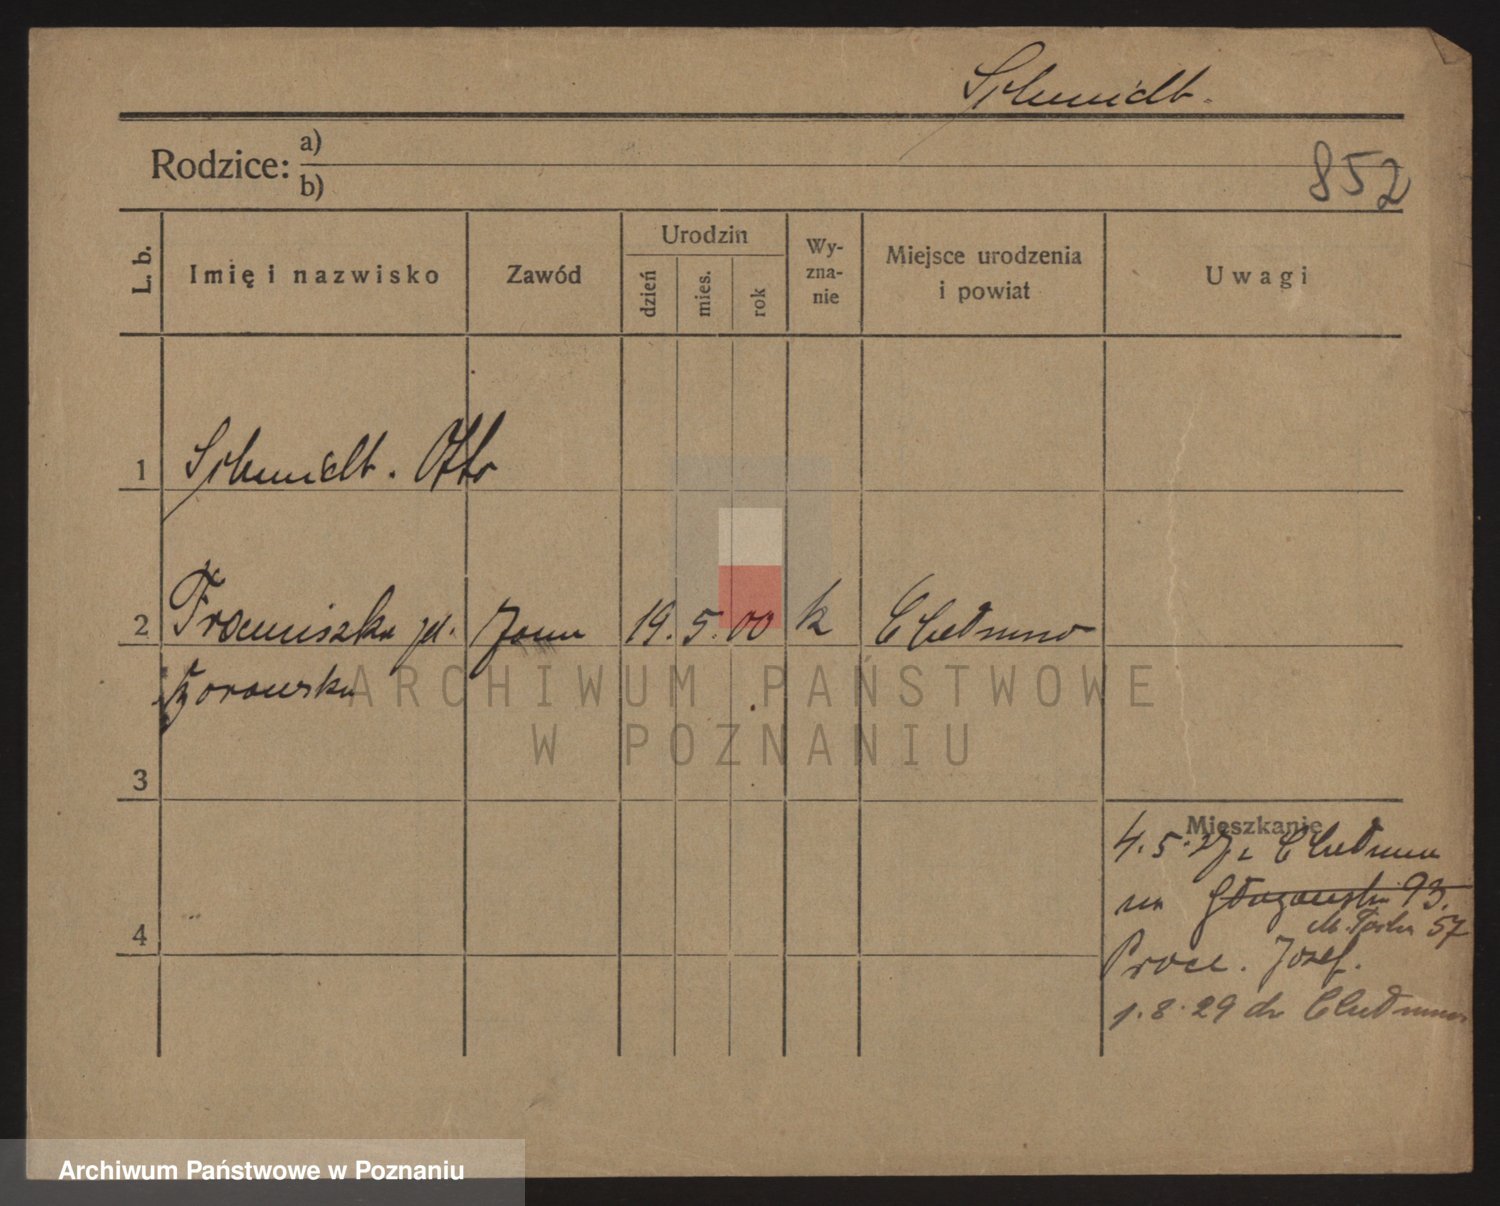 Schmidt.
Rodzice: a)
b)
852
L. b.
Imię i nazwisko
Zawód
Urodzin
dzień
mies.
rok
Wy-
zna-
nie
Miejsce urodzenia
i powiat
Uwagi
1 Schmidt. Otto
2 Franciszka żona 19. 5. 00 k Chełmno
3
4
Mieszkanie
4. 5. 27. z Chełmna
na 93.
57
Józef.
1. 8. 29 do Chełmna
ARCHIWUM PAŃSTWOWE
W POZNANIU
Archiwum Państwowe w Poznaniu